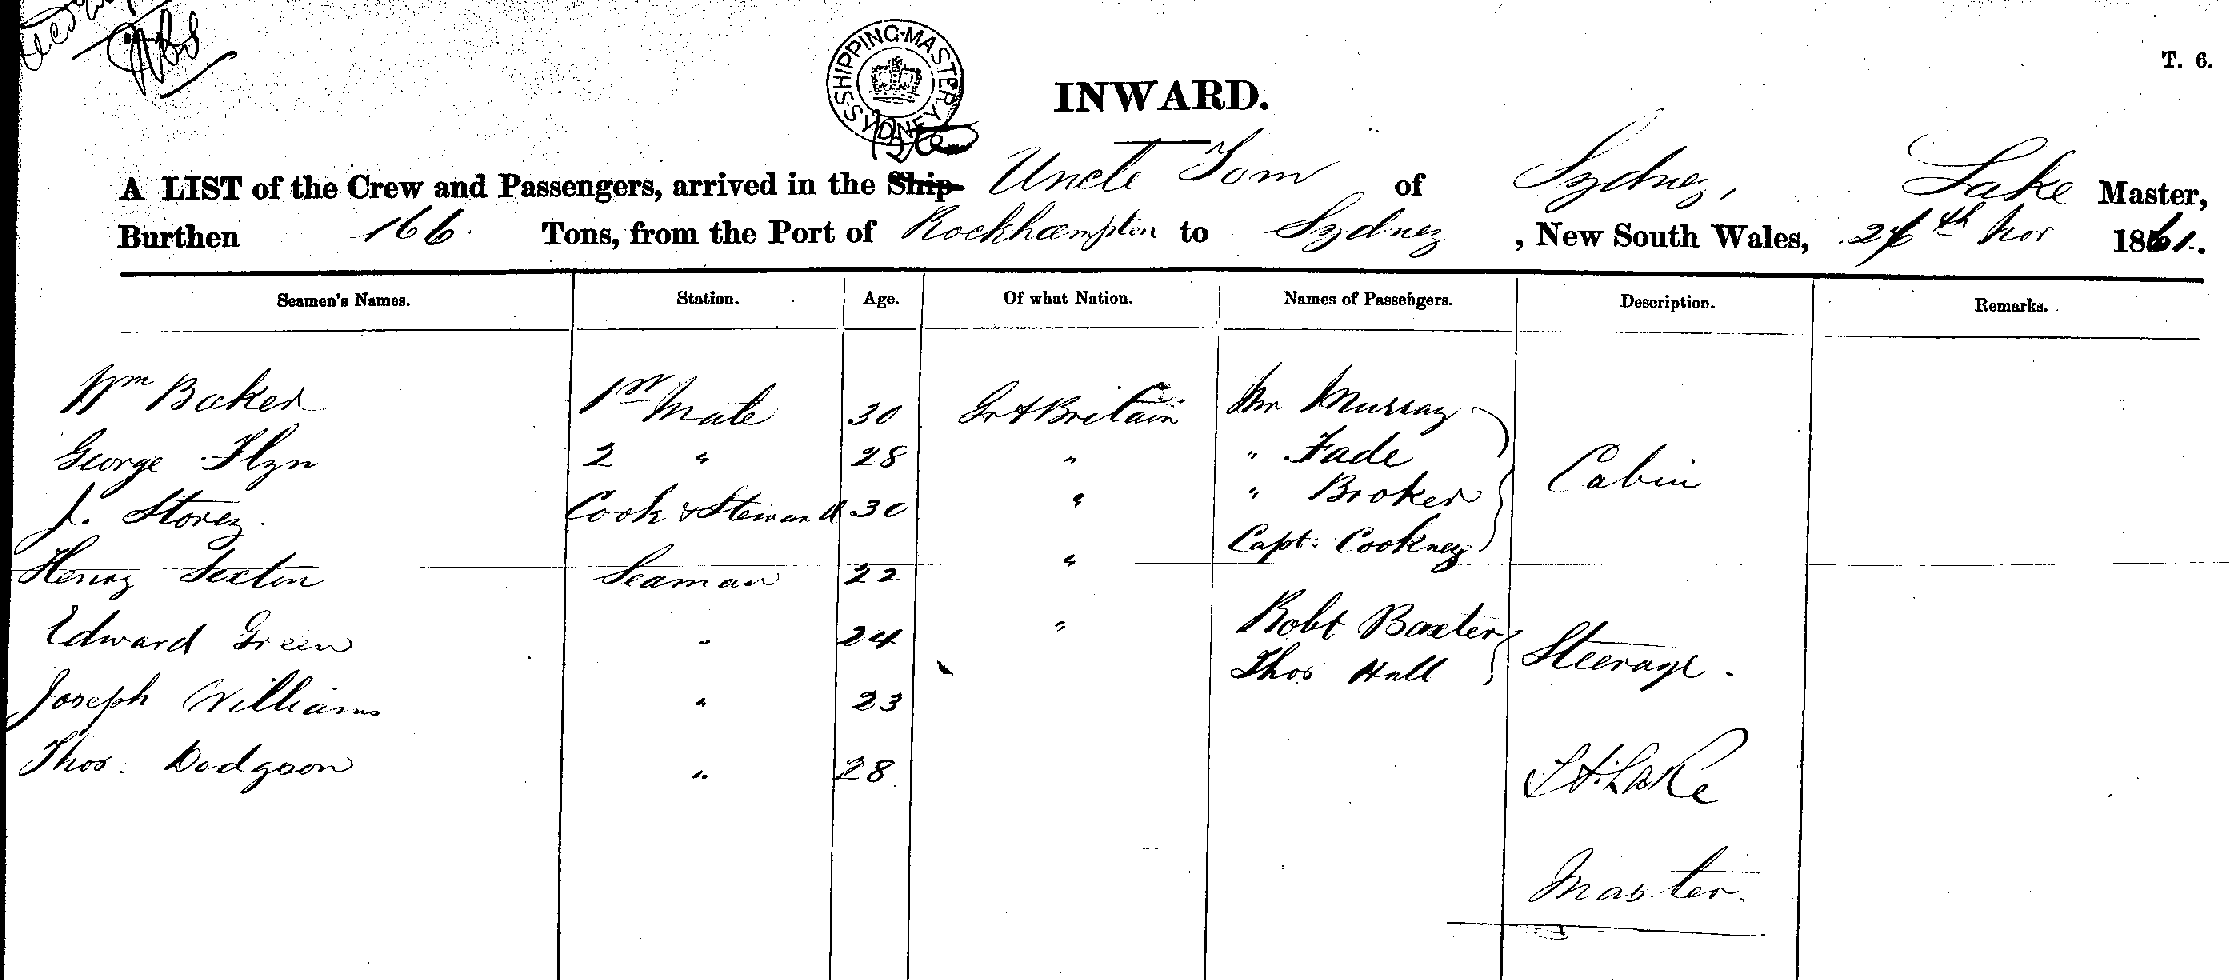 T. 6.
SHIPPING MASTER SYDNEY
INWARD.
A LIST of the Crew and Passengers, arrived in the Ship Uncle Tom of Sydney, Lake Master,
Burthen 166 Tons, from the Port of Rockhampton to Sydney, New South Wales, Nov 1861.
Seamen's Names. Station. Age. Of what Nation. Names of Passengers. Description. Remarks.
Wm Baker 1st Mate 30 Grt Britain Mr Murray
George Flyn 2 " 28 " " Fade
Cabin
J. Storey Cook & Steward 30 " " Broker
Capt. Cookney
Henry Sexton Seaman 22 "
Edward Green " 24 " Robt Baxter
Steerage.
Thos Hall
Joseph Williams " 23
Thos. Dodgson " 28
Lake
Master.